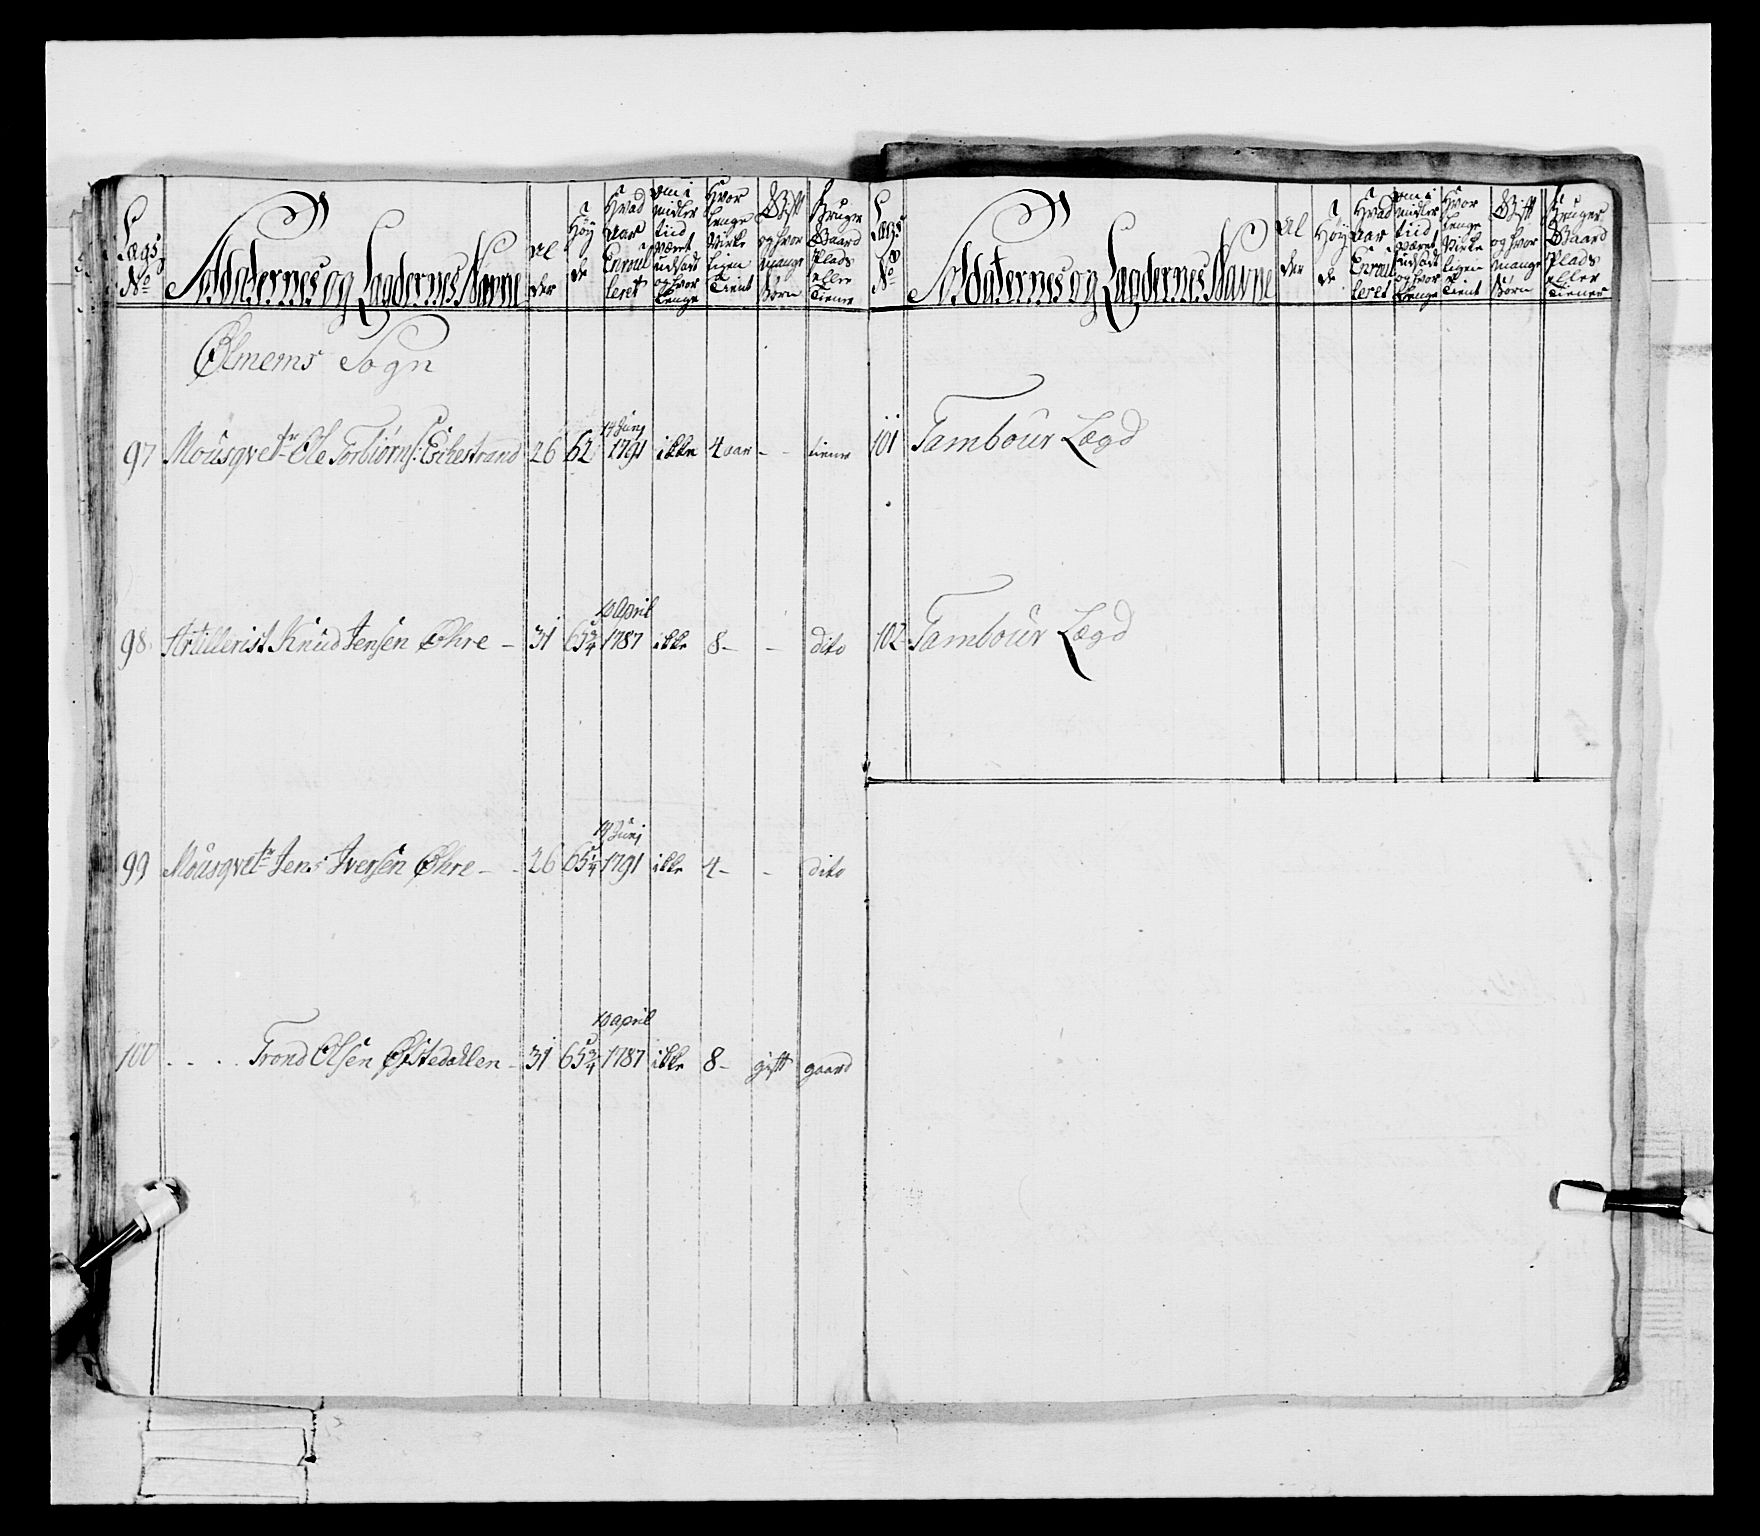 Lægs No
Soldaternes og Lægdernes Navne
Al der
Høy de
Hvad Aar Enroul leret
om i midler tiid været udsadt og hvor længe
Hvor længe Virke ligen Tient
Gift og hvor mange Børn
Bruger Gaard Plads eller Tiener
Ølmems Sogn
97 Mousqvetr Ole Torbiørns: Eichestrand 26 62 14 Junj 1791 ikke 4 aar - - tiener
98 Artillerist Knud Jensen Øhre - 31 65 3/4 10 April 1787 ikke 8 - - dito
99 Mousqvetr Jens Iversen Øhre - - 26 65 1/4 14 Junj 1791 ikke 4 - - dito
100 - . . Trond Olsen Øfstedahlen - 31 65 3/4 10 april 1787 ikke 8 - gift gaard
Lægs No
Soldaternes og Lægdernes Navne
Al der
Høy de
Hvad Aar Enroul leret
om i midler tiid været udsadt og hvor længe
Hvor længe Virke ligen Tient
Gift og hvor mange Børn
Bruger Gaard Plads eller Tiener
101 Tambour Lægd
102 Tambour Lægd